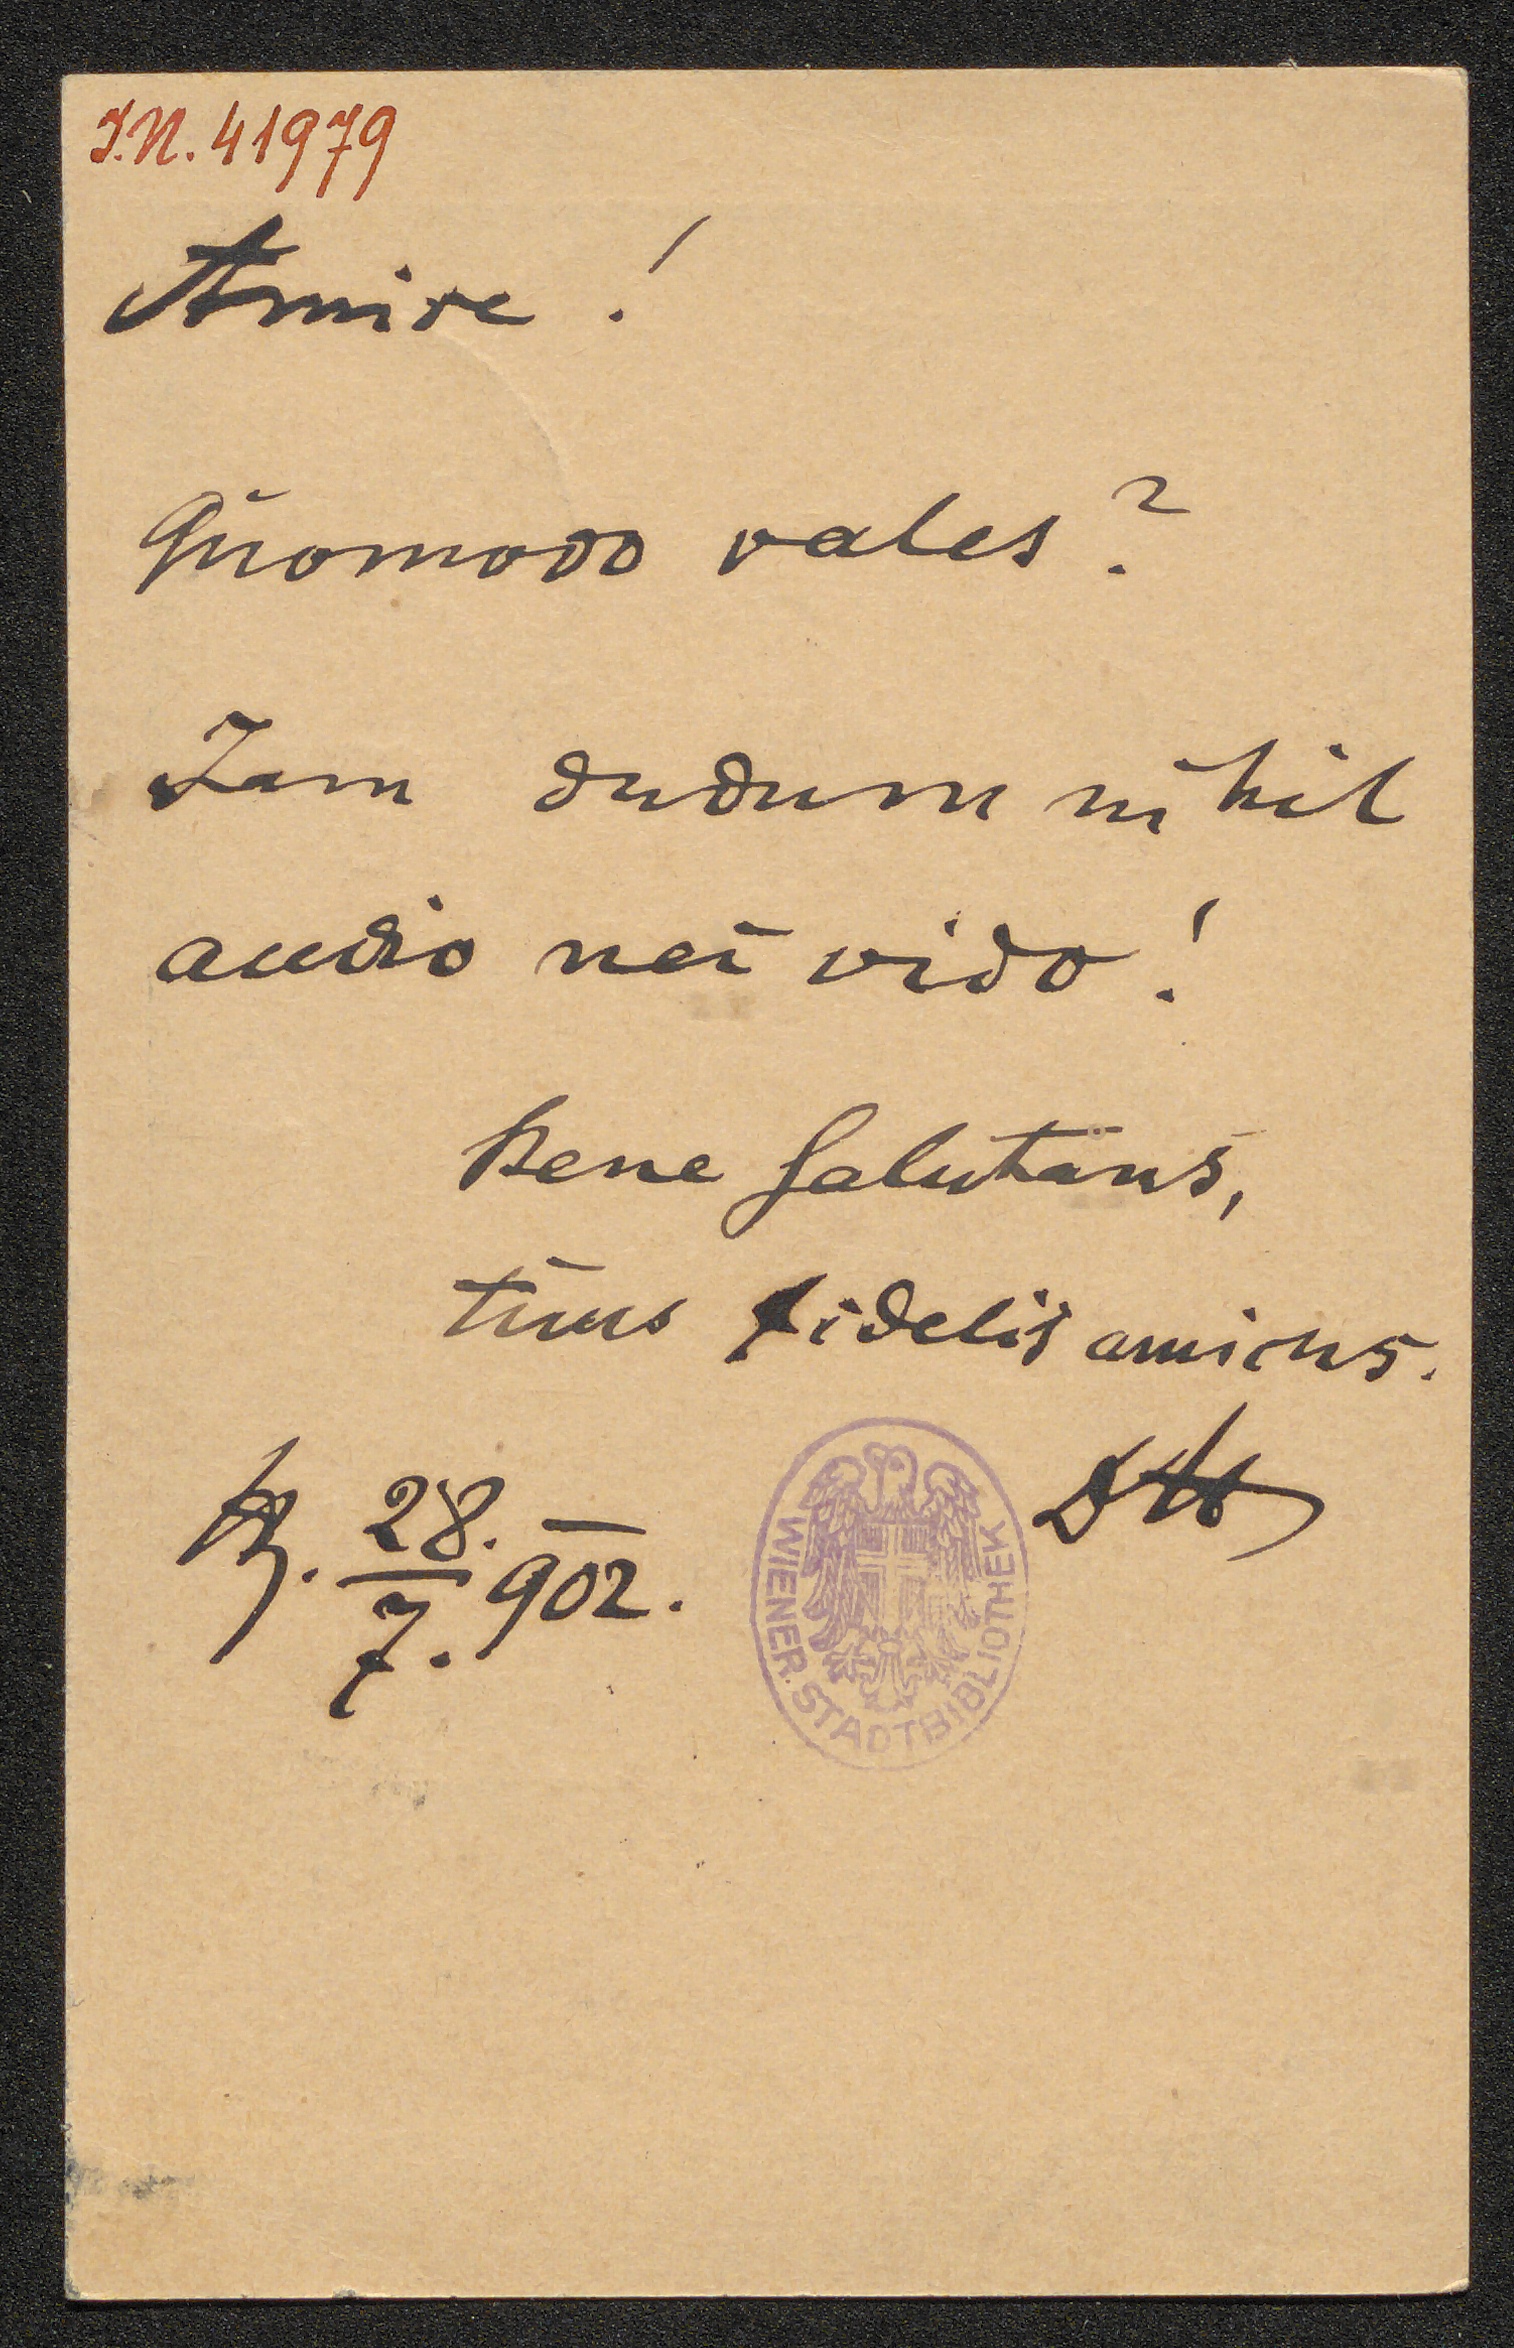 J.N. 41979
Amice!
Quomodo vales?
Jam dudum nihil
audio nec vido!
Bene salutans,
tuus fidelis amicus.
28./7. 902.
WIENER STADTBIBLIOTHEK